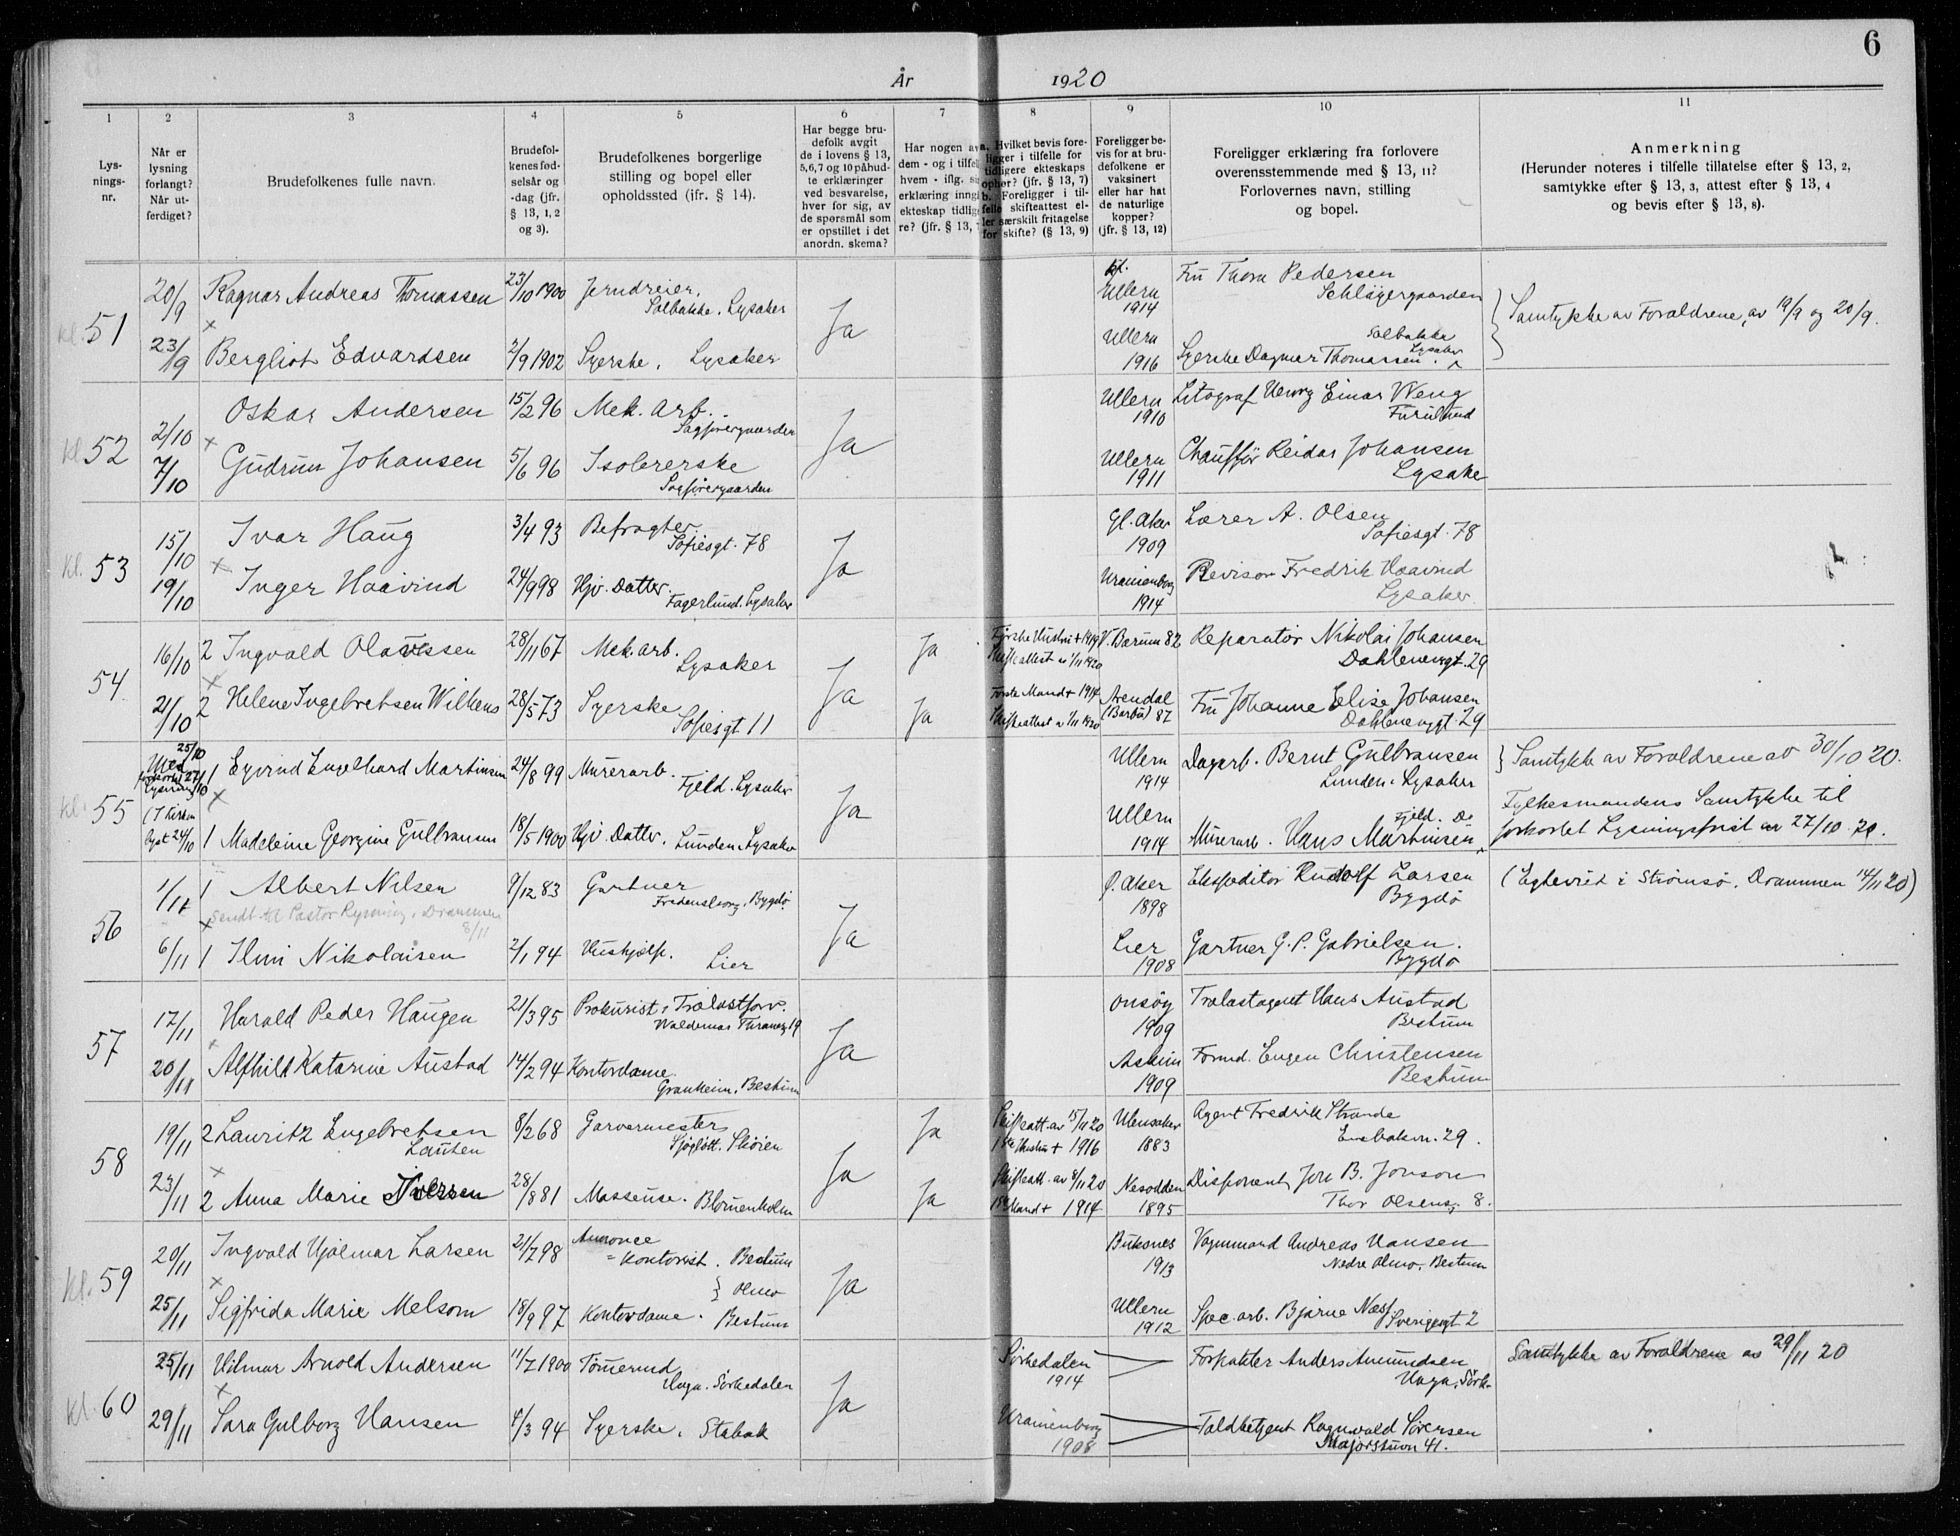 6
År 1920
1 2 3 4 5 6 7 8 9 10 11
Lysnings-nr.
Når er lysning forlangt? Når utferdiget?
Brudefolkenes fulle navn.
Brudefolkenes fødselsår og -dag (jfr. § 13, 1, 2 og 3).
Brudefolkenes borgerlige stilling og bopel eller opholdssted (ifr. § 14).
Har begge brudefolk avgit de i lovens § 13, 5,6,7 og 10 påhudte erklæringer ved besvarelse, hver for sig, av de spørsmål som er opstillet i det anordn. skema?
Har nogen av dem - og i tilfelle hvem - iflg. erklæring ekteskap tidligere? (jfr. § 13,
Hvilket bevis foreligger i tilfelle for tidligere ekteskaps ophør? (jfr. § 13, 7) Foreligger i tilfelle skifteattest eller særskilt fritagelse for skifte? (§ 13, 9)
Foreligger bevis for at brudefolkene er vaksinert eller har hat de naturlige kopper? (jfr. § 13, 12)
Foreligger erklæring fra forlovere overensstemmende med § 13, 11? Forlovernes navn, stilling og bopel.
Anmerkning (Herunder noteres i tilfelle tillatelse efter § 13, 2, samtykke efter § 13, 3, attest efter § 13, 4 og bevis efter § 13, 8).
kl. 51
20/9 Ragnar Andreas Thomassen 23/10 1900 Jerndreier, Solbakke. Lysaker Ja Ullern 1914 Fru Thora Pedersen Schlägergaarden
Samtykke av Foraldrene, av 19/9 og 20/9.
23/9 Bergliot Edvardsen 2/9 1902 Syerske, Lysaker Ullern 1916 Syerske Dagmar Thomassen. Solbakke Lysaker
kl. 52
2/10 Oskar Andersen 15/2 96 Mek. Arb. Sagførergaarden Ja Ullern 1910 Litograf Georg Einar Weng Furulund
7/10 Gudrun Johansen 5/6 96 Isolererske Sagførergaarden Ullern 1911 Chauffør Reidar Johansen Lysaker
kl. 53
15/10 Ivar Haug 3/4 93 Befragter Sofiesgt. 78 Ja Gl. Aker 1909 Lærer A. Olsen Sofiesgt. 78
19/10 Inger Haavind 24/9 98 Hjv. Datter. Fagerlund. Lysaker Uranienborg 1914 Revisor Fredrik Haavind Lysaker.
54
16/10 2 Ingvald Olavessen 28/11 67 Mek. arb. Lysaker Ja Ja Første Hustru + 1919 Skifteattest av 1/11 1920 V. Bærum 82 Reparatør Nikolai Johansen Dahlenengt. 29
21/10 2 Helene Ingebretsen Wilkens 28/5 73 Syerske Sofiesgt 11 Ja Første Mand + 1914 Skifteattest av 1/11 1920 Arendal (Barbu) 87 Fru Johanne Elise Johansen Dahlenengt. 29
kl. 55
25/10 Med forkortet 27/10 Lysning 1 Eyvind Engelhard Martinsen 24/8 99 Murerarb. Fjeld. Lysaker Ja Ullern 1914 Dagarb. Bernt Gulbransen Lunden. Lysaker
Samtykke av Foraldrene av 30/10 20.
(I Kirken lyst 24/10 1 Madeleine Georgine Gulbransen 18/5 1900 Hjv. Datter. Lunden. Lysaker Ullern 1914 Murerarb. Hans Martinsen, Fjeld. Do
Fylkesmandens Samtykke til forkortet Lysningsfrist av 27/10 20.
56
1/11 1 Albert Nilsen 9/12 83 Gartner Fredensborg, Bygdø Ja Ø. Aker 1898 Ekspeditør Rudolf Larsen Bygdø
(Egteviet i Strømsø, Drammen 14/11 20)
Sendt til Pastor Rysning, Drammen 8/11
6/11 1 Ilmi Nikolaisen 2/1 94 Hushjelp. Lier Lier 1908 Gartner G. P. Gabrielsen. Bygdø
57
17/11 Harald Peder Haugen 21/3 95 Prokurist i Trælastforr. Waldemar Thranesg 19 Ja Onsøy 1909 Trælastagent Hans Austad Bestum
20/11 Alfhild Katarine Austad 14/2 94 Kontordame. Granheim. Bestum Askim 1909 Formd. Eugen Christensen Bestum
58
19/11 2 Lauritz Engebretsen Lauten 8/2 68 Garvermester Sjøglött. Skøien Ja Ja Skifteatt. av 15/11 20 1ste Hustru + 1916 Ullensaker 1883 Agent Fredrik Strande Enebakvn. 29.
23/11 2 Anna Marie Iversen 28/8 81 Massøuse. Blommenholm Ja Skifteatt. av 8/11 20 1ste Mand + 1914 Nesodden 1895 Disponent Jon B. Jonson Thor Olsensg. 8.
kl. 59
20/11 Ingvald Hjalmar Larsen 21/7 98 Annonce = Kontorist. Bestum Olmo Ja Buksnes 1913 Vognmand Andreas Hansen Nedre Olmo. Bestum
25/11 Sigfrida Marie Melsom 18/9 97 Kontordame. Bestum Ullern 1912 Spec. arb. Bjarne Næss Sverigesgt 2
kl. 60
25/11 Hilmar Arnold Andersen 11/7 1900 Tømmermd Haga. Sørkedalen Ja Sørkedalen 1914 Forpakter Anders Amundsen Haga, Sørk-
Samtykke av Foraldrene av 29/11 20
29/11 Sara Gulborg Hansen 4/3 94 Syerske. Stabæk Uranienborg 1908 Toldbetjent Ragnvald Sørensen Majorstuvn 41.